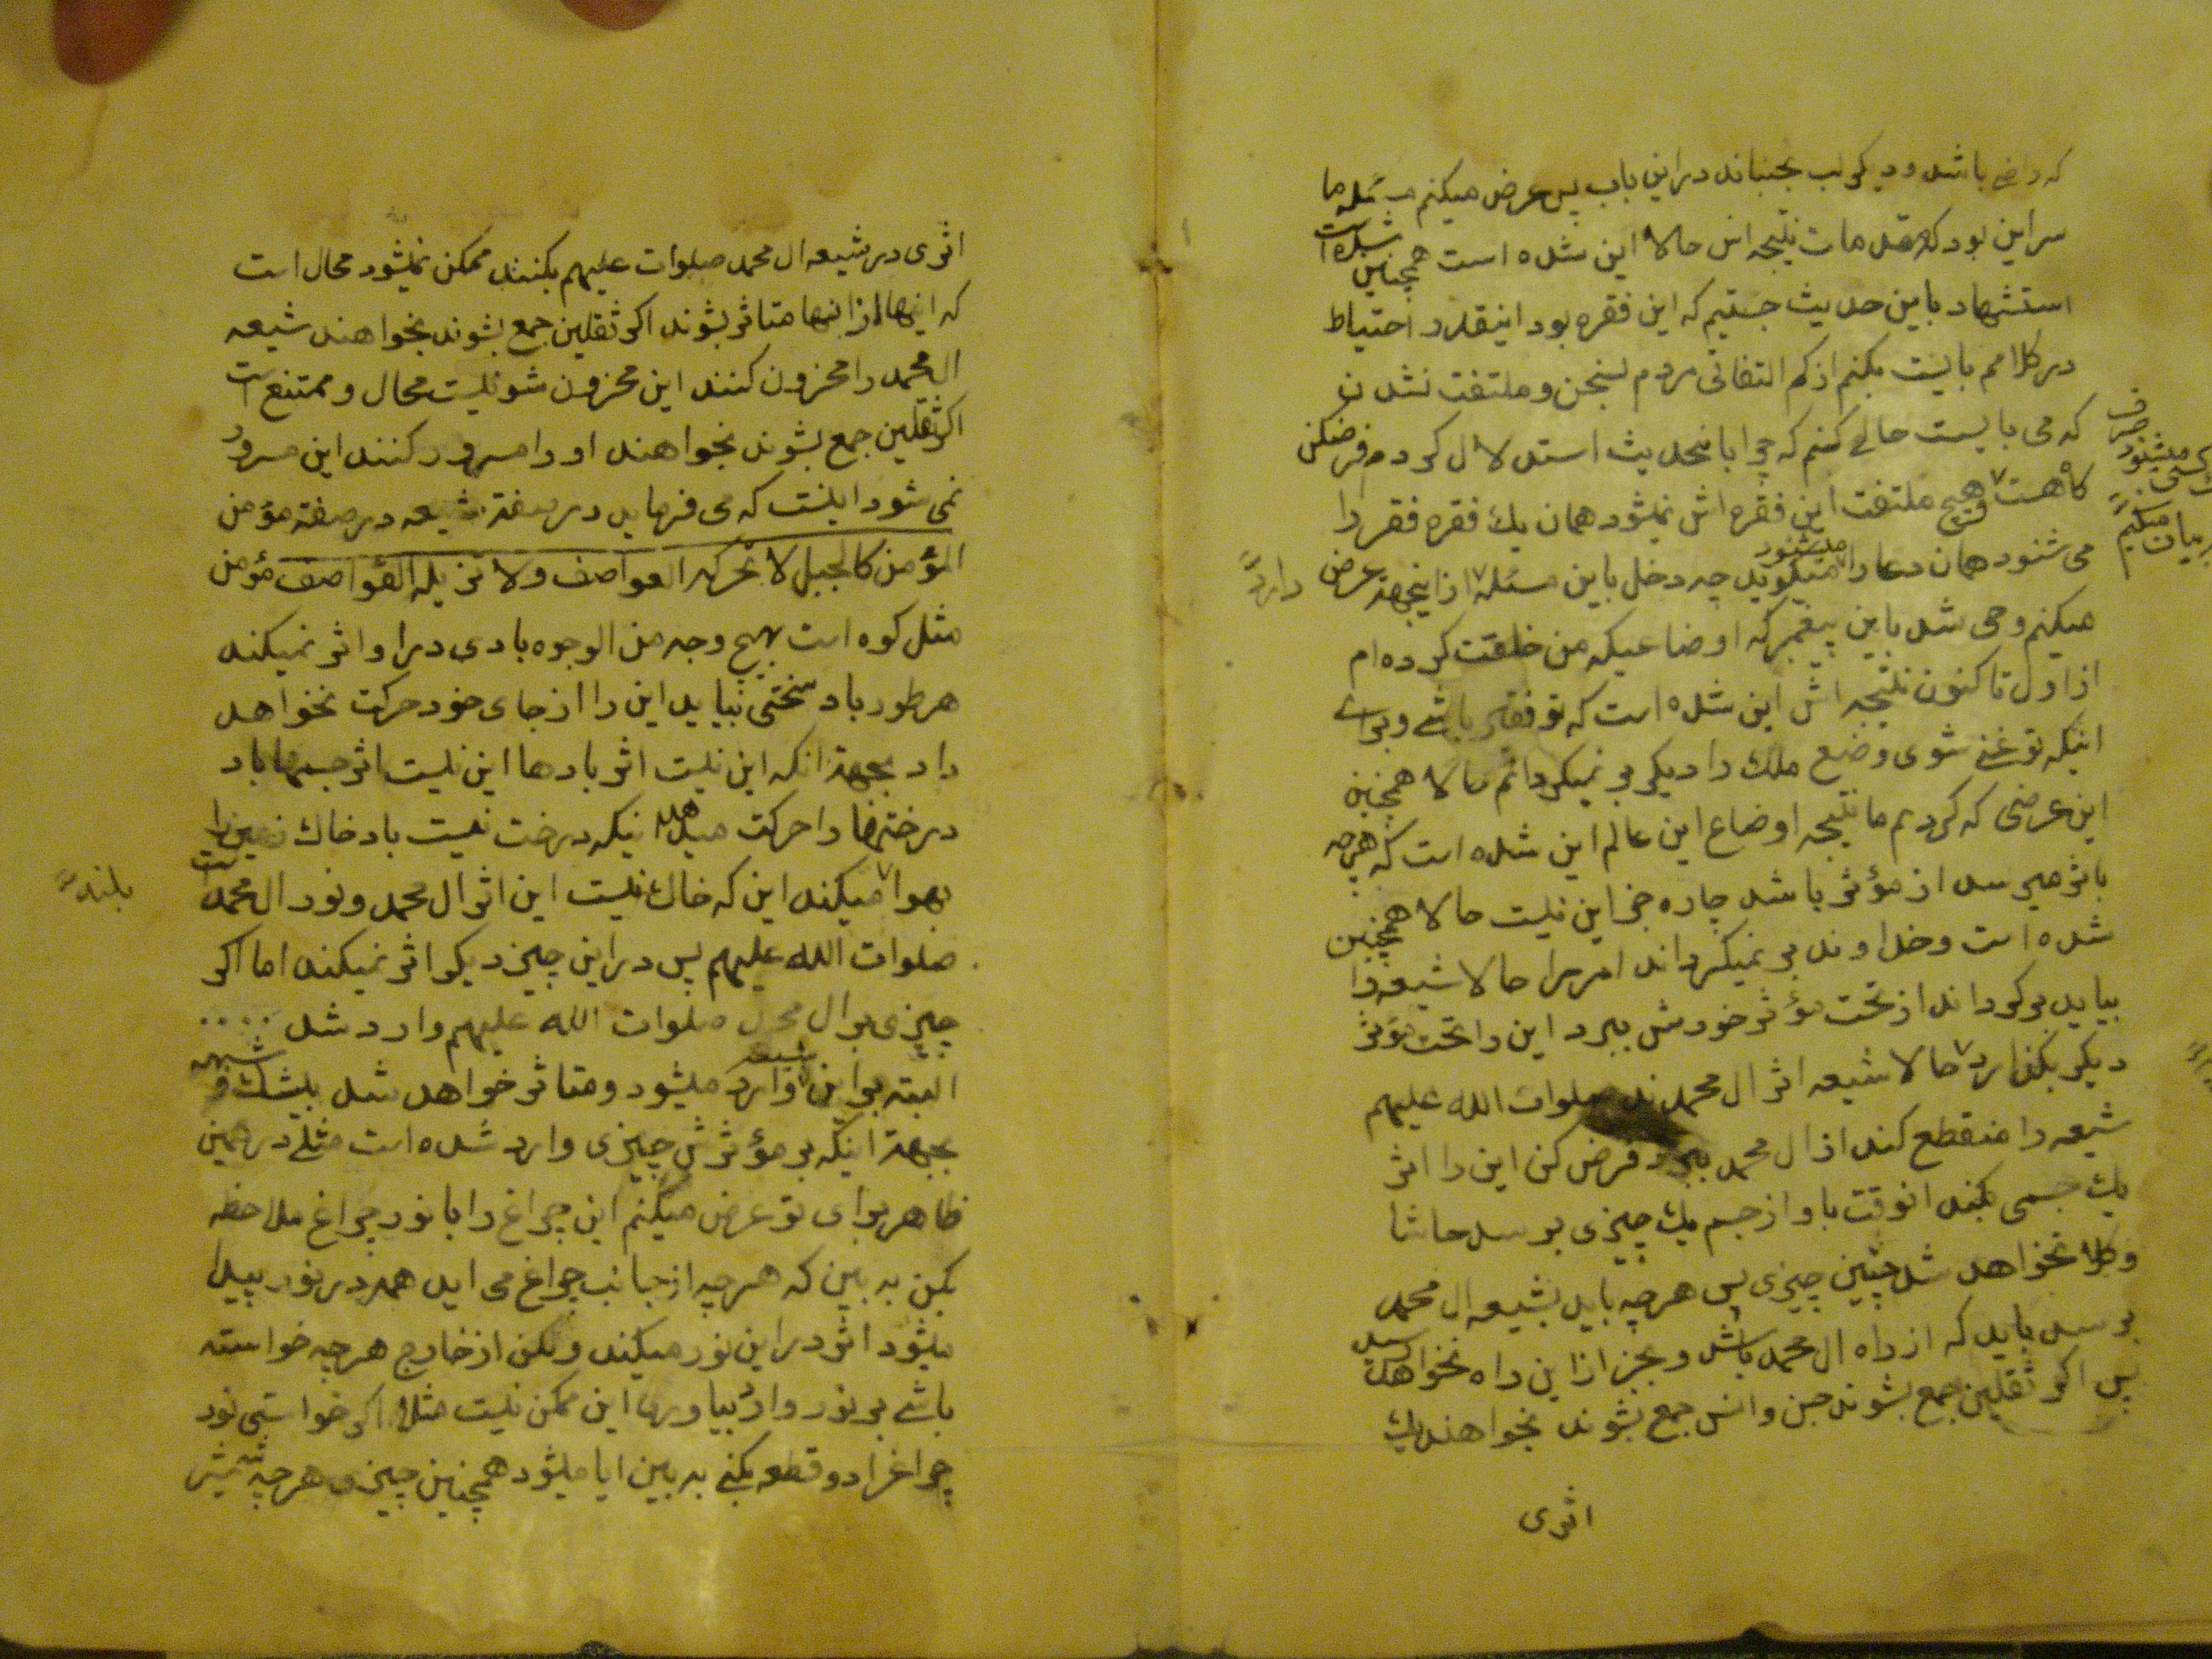 که راضی باشد و دیگر لب بجنباند در این باب پس عرض میکنم مسئله ما
سر این بود که مقدمات نتیجه اش حالا این شده است همچنین شده است
استشهاد باین حدیث جستیم که این فقره بود اینقدر احتیاط
در کلامم بایست بکنم از کم التفاتی مردم بسخن و ملتفت نشدن
که می بایست حالی کنم که چرا باینحدیث استدلال کردم فرض کن
کاهست هیچ ملتفت این فقره اش نمیشود همان یک فقره فقر را
می شنود همان دعا را میشنود میگوید چه دخل باین مسئله از اینجهة عرض
دارد
میکنم وحی شد باین پیغمبر که اوضاعیکه من خلقت کرده ام
از اول تا کنون نتیجه اش این شده است که تو فقیر باشی و برای
اینکه تو غنی شوی وضع ملک را دیگر بر نمیگردانم حالا همچنین
این عرضی که کردیم ما نتیجه اوضاع این عالم این شده است که هرچه
باثر میرسد از مؤثر باشد چاره جز این نیست حالا همچنین
شده است و خداوند بر نمیگرداند امر را حالا شیعه را
بیاید برگرداند از تحت مؤثر خودش ببرد این را تحت مؤثر
دیگر بگذارد حالا شیعه اثر ال محمدند صلوات الله علیهم
شیعه را منقطع کند از ال محمد ببرد فرض کن این را اثر
یک جسمی بکند انوقت باو از جسم یک چیزی برسد حاشا
و کلا نخواهد شد چنین چیزی پس هرچه باید بشیعه ال محمد
برسد باید که از راه ال محمد باشد و بجز از این راه نخواهد رسید
پس اگر ثقلین جمع بشوند جن و انس جمع بشوند بخواهند یک
اثری
اثری در شیعه ال محمد صلوات علیهم بکنند ممکن نمیشود محال است
که اینها از اینها متاثر بشوند اگر ثقلین جمع بشوند بخواهند شیعه
ال محمد را محزون کنند این محزون شو نیست محال و ممتنع است
اگر ثقلین جمع بشوند بخواهند او را مسرور کنند این مسرور
نمی شود اینست که می فرماید در صفة شیعه در صفة مؤمن
المؤمن کالجبل لا تحرکه العواصف و لا تزیله القواصف مؤمن
مثل کوه است بهیچ وجه من الوجوه بادی در او اثر نمیکند
هر طور باد سختی بیاید این را از جای خود حرکت نخواهد
داد بجهة انکه این نیست اثر بادها این نیست اثر جسمها باد
درختها را حرکت میدهد اینکه درخت نیست باد خاک زمین را
بهوا میکند این که خاک نیست این اثر ال محمد و نور ال محمد است
بلند
صلوات الله علیهم پس در این چیز دیگر اثر نمیکند اما اگر
چیزی بر ال محمد صلوات الله علیهم وارد شد ....
البته بر این شیعه وارد میشود و متاثر خواهد شد بیشک و شبهه
بجهة اینکه بر مؤثرش چیزی وارد شده است مثلی در همین
ظاهر برای تو عرض میکنم این چراغ را با نور چراغ ملاحظه
بکن به بین که هرچه از جانب چراغ می اید همه در نور پیدا
میشود اثر در این نور میکند ولکن از خارج هرچه خواسته
باشی بر نور وارد بیاوری این ممکن نیست مثلا اگر خواستی نور
چراغ را دو قطعه بکنی به بین ایا میشود همچنین چیزی هرچه شمشیر